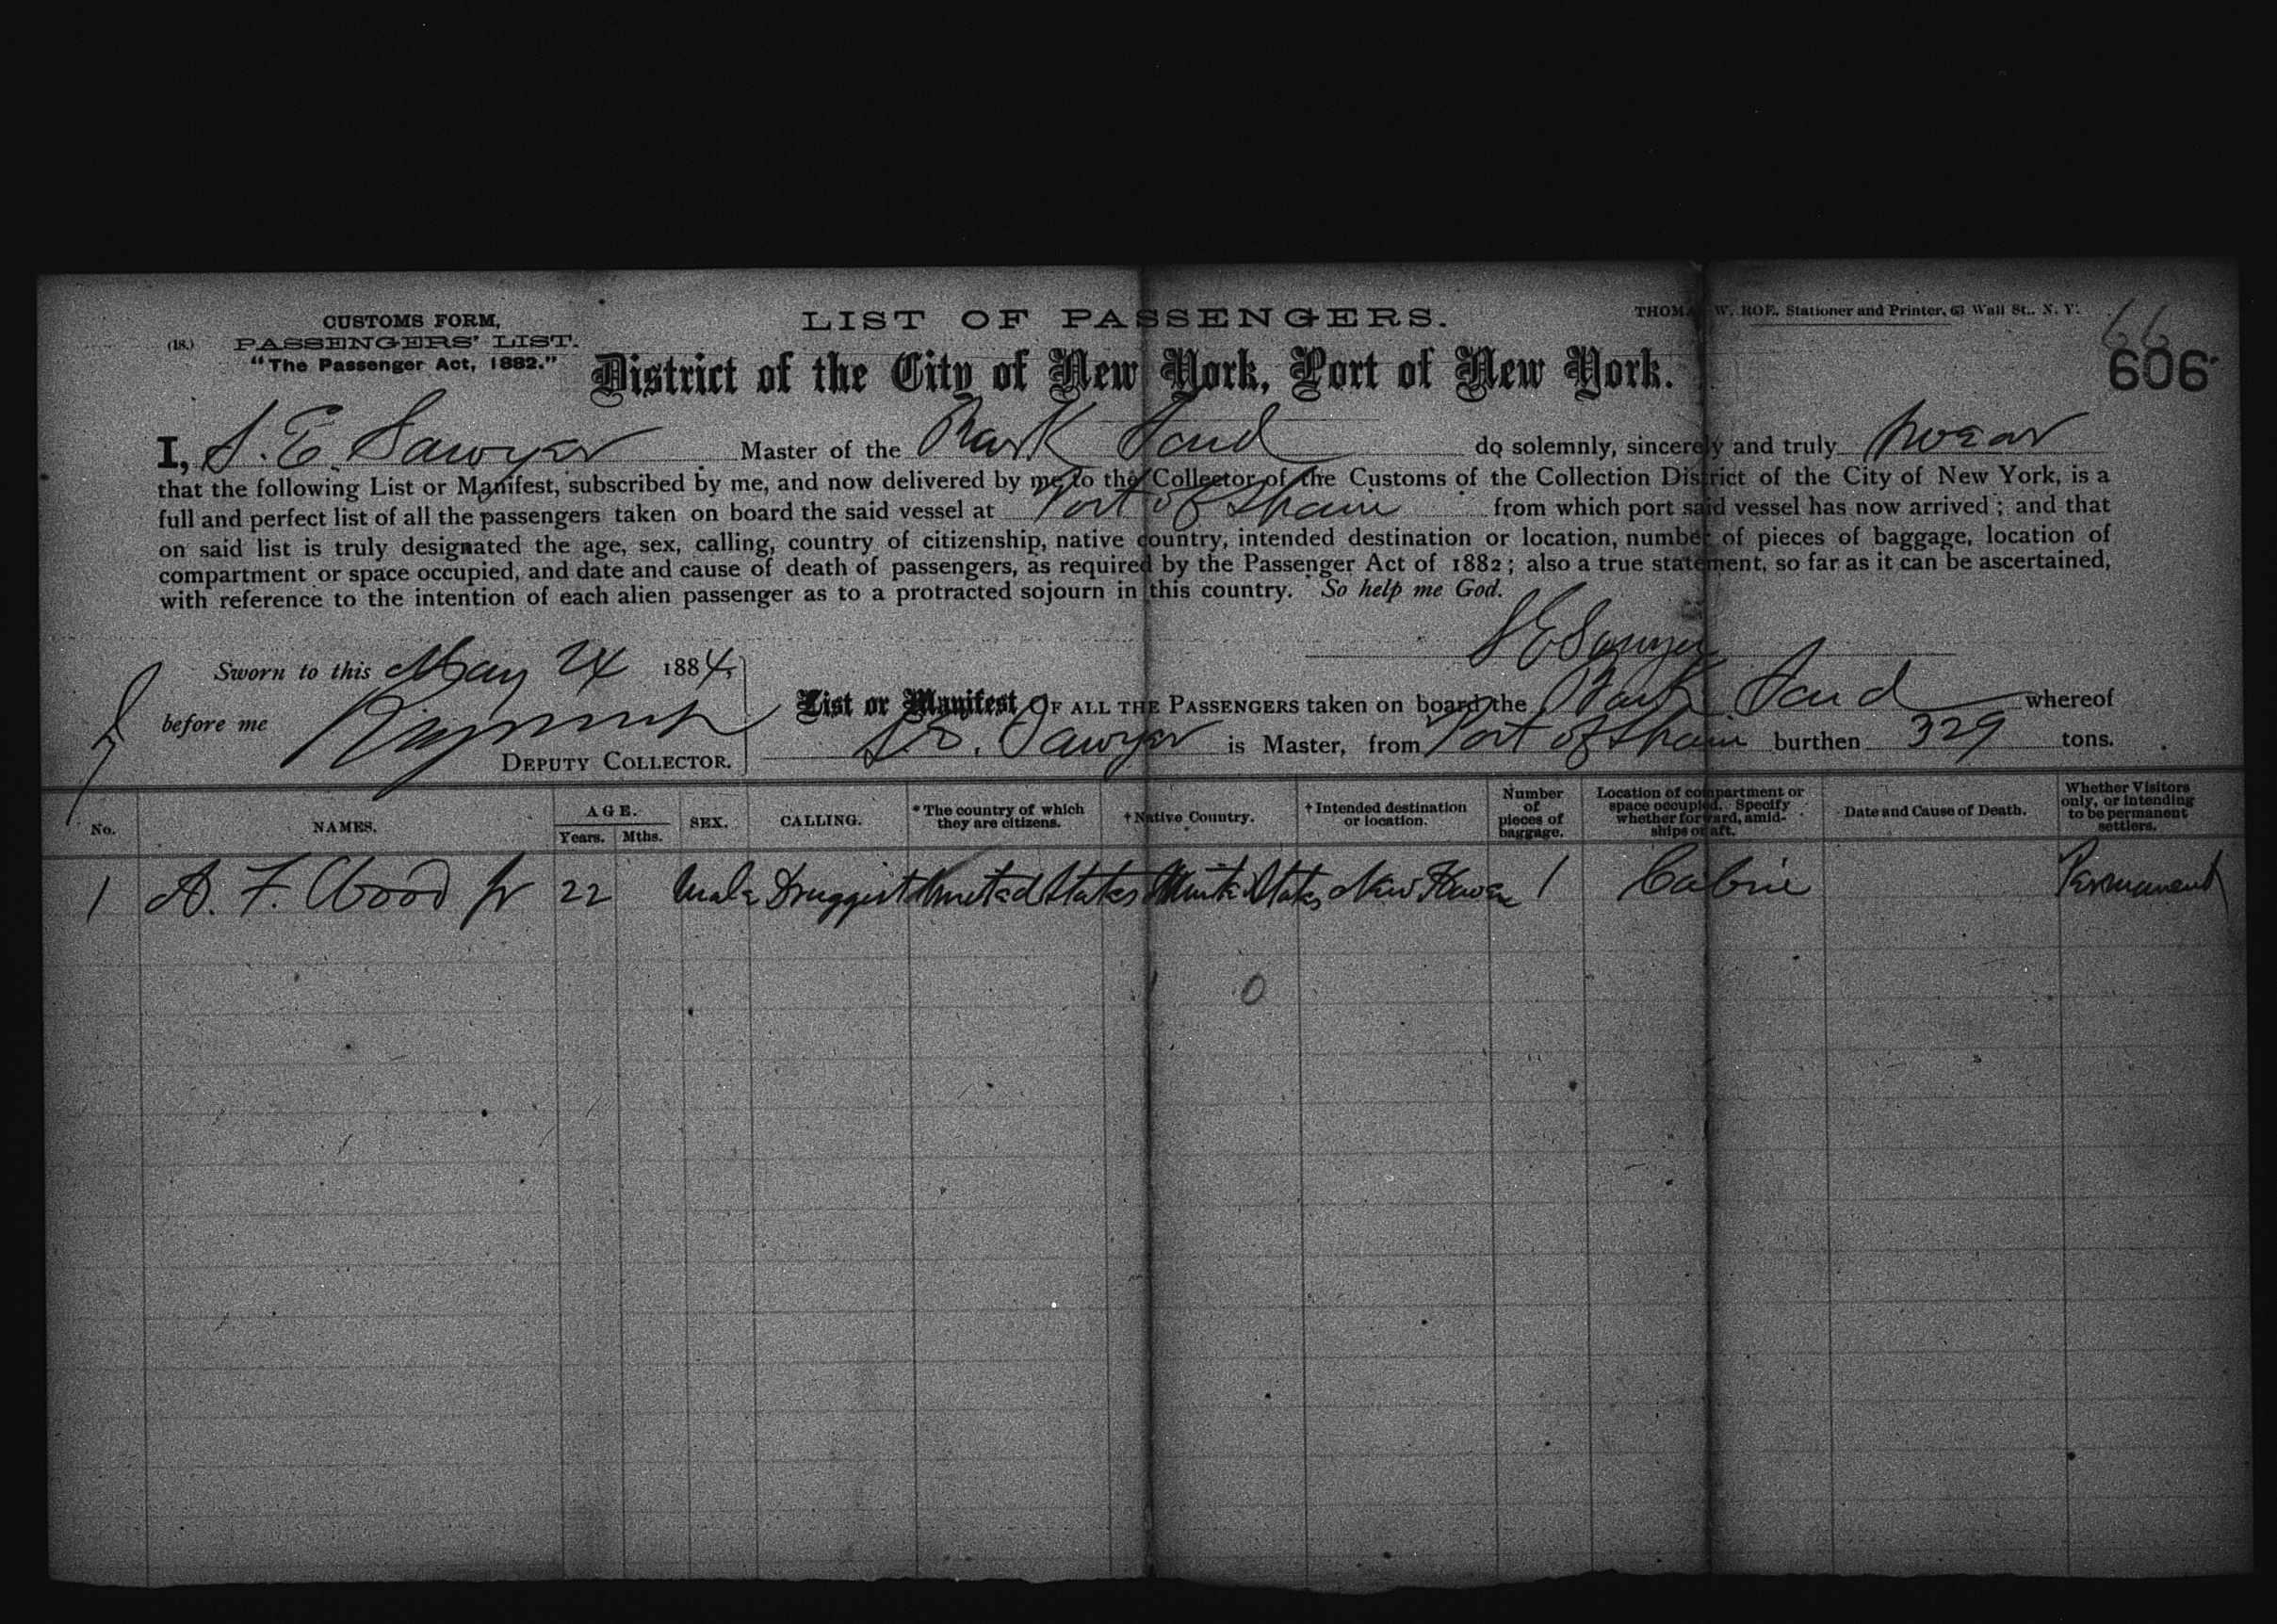 CUSTOMS FORM,
(18.) PASSENGERS' LIST.
"The Passenger Act, 1882."
LIST OF PASSENGERS.
THOMAS W. ROE, Stationer and Printer, 63 Wall St., N. Y.
66
606
District of the City of New York, Port of New York.
I, S. E. Sawyer Master of the Bark do solemnly, sincerely and truly swear
that the following List or Manifest, subscribed by me, and now delivered by me to the Collector of the Customs of the Collection District of the City of New York, is a
full and perfect list of all the passengers taken on board the said vessel at Port of Spain from which port said vessel has now arrived; and that
on said list is truly designated the age, sex, calling, country of citizenship, native country, intended destination or location, number of pieces of baggage, location of
compartment or space occupied, and date and cause of death of passengers, as required by the Passenger Act of 1882; also a true statement, so far as it can be ascertained,
with reference to the intention of each alien passenger as to a protracted sojourn in this country. So help me God.
S E Sawyer
Sworn to this May 24 1884,
before me
DEPUTY COLLECTOR.
List or Manifest OF ALL THE PASSENGERS taken on board the Bark whereof
S. E. Sawyer is Master, from Port of Spain burthen 329 tons.
No. NAMES. AGE. Years. Mths. SEX. CALLING. * The country of which they are citizens. † Native Country. † Intended destination or location. Number of pieces of baggage. Location of compartment or space occupied. Specify whether forward, amidships or aft. Date and Cause of Death. Whether Visitors only, or intending to be permanent settlers.
1 A. F. Wood Jr 22 Male Druggist United States United States New Haven 1 Cabin Permanent
0